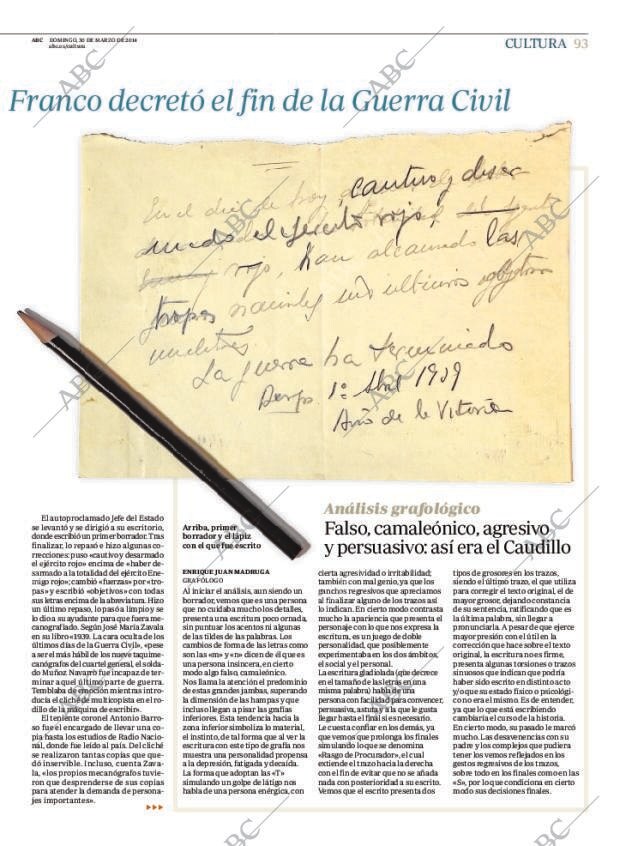 ABC DOMINGO, 30 DE MARZO DE 2014
abc.es/cultura
CULTURA 93
Franco decretó el fin de la Guerra Civil
En el día de hoy, cautivo y desar
mado el ejército rojo,
rojo, han alcanzado las
tropas nacionales sus ultimos objetivos
militares.
La guerra ha terminado
Burgos 1º Abril 1939
Año de la Victoria
El autoproclamado Jefe del Estado
se levantó y se dirigió a su escritorio,
donde escribió un primer borrador. Tras
finalizar, lo repasó e hizo algunas
correcciones: puso «cautivo y desarmado
el ejército rojo» encima de «haber de-
sarmado a la totalidad del ejército Ene-
migo rojo»; cambió «fuerzas» por «tro-
pas» y escribió «objetivos» con todas
sus letras encima de la abreviatura. Hizo
un último repaso, lo pasó a limpio y se
lo dio a su ayudante para que fuera me-
canografiado. Según José María Zavala
en su libro «1939. La cara oculta de los
últimos días de la Guerra Civil», «pese
a ser el más hábil de los nueve taquime-
canógrafos del cuartel general, el solda-
do Muñoz Navarro fue incapaz de ter-
minar aquel último parte de guerra.
Temblaba de emoción mientras intro-
ducía el cliché de multicopista en el ro-
dillo de la máquina de escribir».
El teniente coronel Antonio Barro-
so fue el encargado de llevar una co-
pia hasta los estudios de Radio Nacio-
nal, donde fue leído al país. Del cliché
se realizaron tantas copias que que-
dó inservible. Incluso, cuenta Zava-
la, «los propios mecanógrafos tuvie-
ron que desprenderse de sus copias
para atender la demanda de persona-
jes importantes».
Arriba, primer
borrador y el lápiz
con el que fue escrito
Análisis grafológico
Falso, camaleónico, agresivo
y persuasivo: así era el Caudillo
ENRIQUE JUAN MADRUGA
GRAFÓLOGO
Al iniciar el análisis, aun siendo un
borrador, vemos que es una persona
que no cuidaba mucho los detalles,
presenta una escritura poco ornada,
sin puntuar los acentos ni algunas
de las tildes de las palabras. Los
cambios de forma de las letras como
son las «m» y «n» dicen de él que es
una persona insincera, en cierto
modo algo falso, camaleónico.
Nos llama la atención el predominio
de estas grandes jambas, superando
la dimensión de las hampas y que
incluso llegan a pisar las grafías
inferiores. Esta tendencia hacia la
zona inferior simboliza lo material,
el instinto, de tal forma que al ver la
escritura con este tipo de grafía nos
muestra una personalidad propensa
a la depresión, fatigada y decaída.
La forma que adoptan las «T»
simulando un golpe de látigo nos
habla de una persona enérgica, con
cierta agresividad o irritabilidad;
también con mal genio, ya que los
ganchos regresivos que apreciamos
al finalizar alguno de los trazos así
lo indican. En cierto modo contrasta
mucho la apariencia que presenta el
personaje con lo que nos expresa la
escritura, es un juego de doble
personalidad, que posiblemente
experimentaba en los dos ámbitos,
el social y el personal.
La escritura gladiolada (que decrece
en el tamaño de las letras en una
misma palabra) habla de una
persona con facilidad para convencer,
persuasiva, astuta y a la que le gusta
llegar hasta el final si es necesario.
Le cuesta confiar en los demás, ya
que vemos que prolonga los finales
simulando lo que se denomina
«Rasgo de Procurador», el cual
extiende el trazo hacia la derecha
con el fin de evitar que no se añada
nada con posterioridad a su escrito.
Vemos que el escrito presenta dos
tipos de grosores en los trazos,
siendo el último trazo, el que utiliza
para corregir el texto original, el de
mayor grosor, dejando constancia
de su sentencia, ratificando que es
la última palabra, sin llegar a
pronunciarla. A pesar de que ejerce
mayor presión con el útil en la
corrección que hace sobre el texto
original, la escritura no es firme,
presenta algunas torsiones o trazos
sinuosos que indican que podría
haber sido escrito en distinto acto
y/o que su estado físico o psicológi-
co no era el mismo. Es de entender,
ya que lo que está escribiendo
cambiaría el curso de la historia.
En cierto modo, su pasado le marcó
mucho. Las desavenencias con su
padre y los complejos que pudiera
tener los vemos reflejados en los
gestos regresivos de los trazos,
sobre todo en los finales como en las
«S», por lo que condiciona en cierto
modo sus decisiones finales.